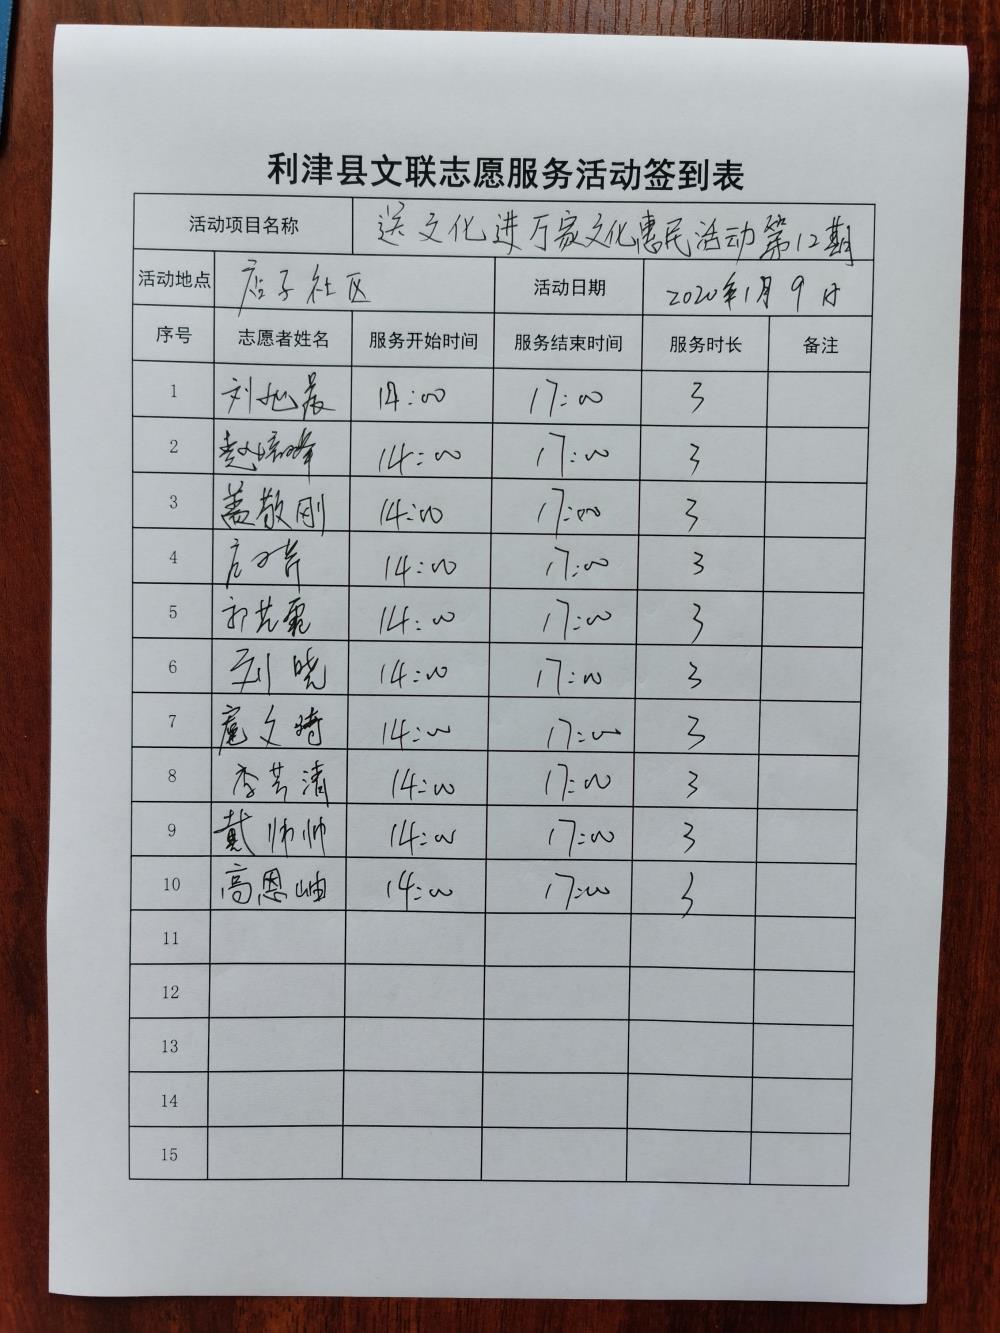 利津县文联志愿服务活动签到表
活动项目名称 送文化进万家文化惠民活动第12期
活动地点 店子社区 活动日期 2020年1月9日
序号 志愿者姓名 服务开始时间 服务结束时间 服务时长 备注
1 刘旭晨 14:00 17:00 3
2 赵培峰 14:00 17:00 3
3 盖敬刚 14:00 17:00 3
4 14:00 17:00 3
5 郭芸霞 14:00 17:00 3
6 刘晓 14:00 17:00 3
7 扈文琦 14:00 17:00 3
8 李芳清 14:00 17:00 3
9 戴帅帅 14:00 17:00 3
10 高恩岫 14:00 17:00 3
11
12
13
14
15